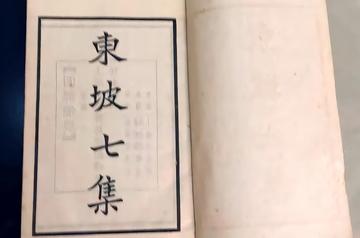 東坡七集